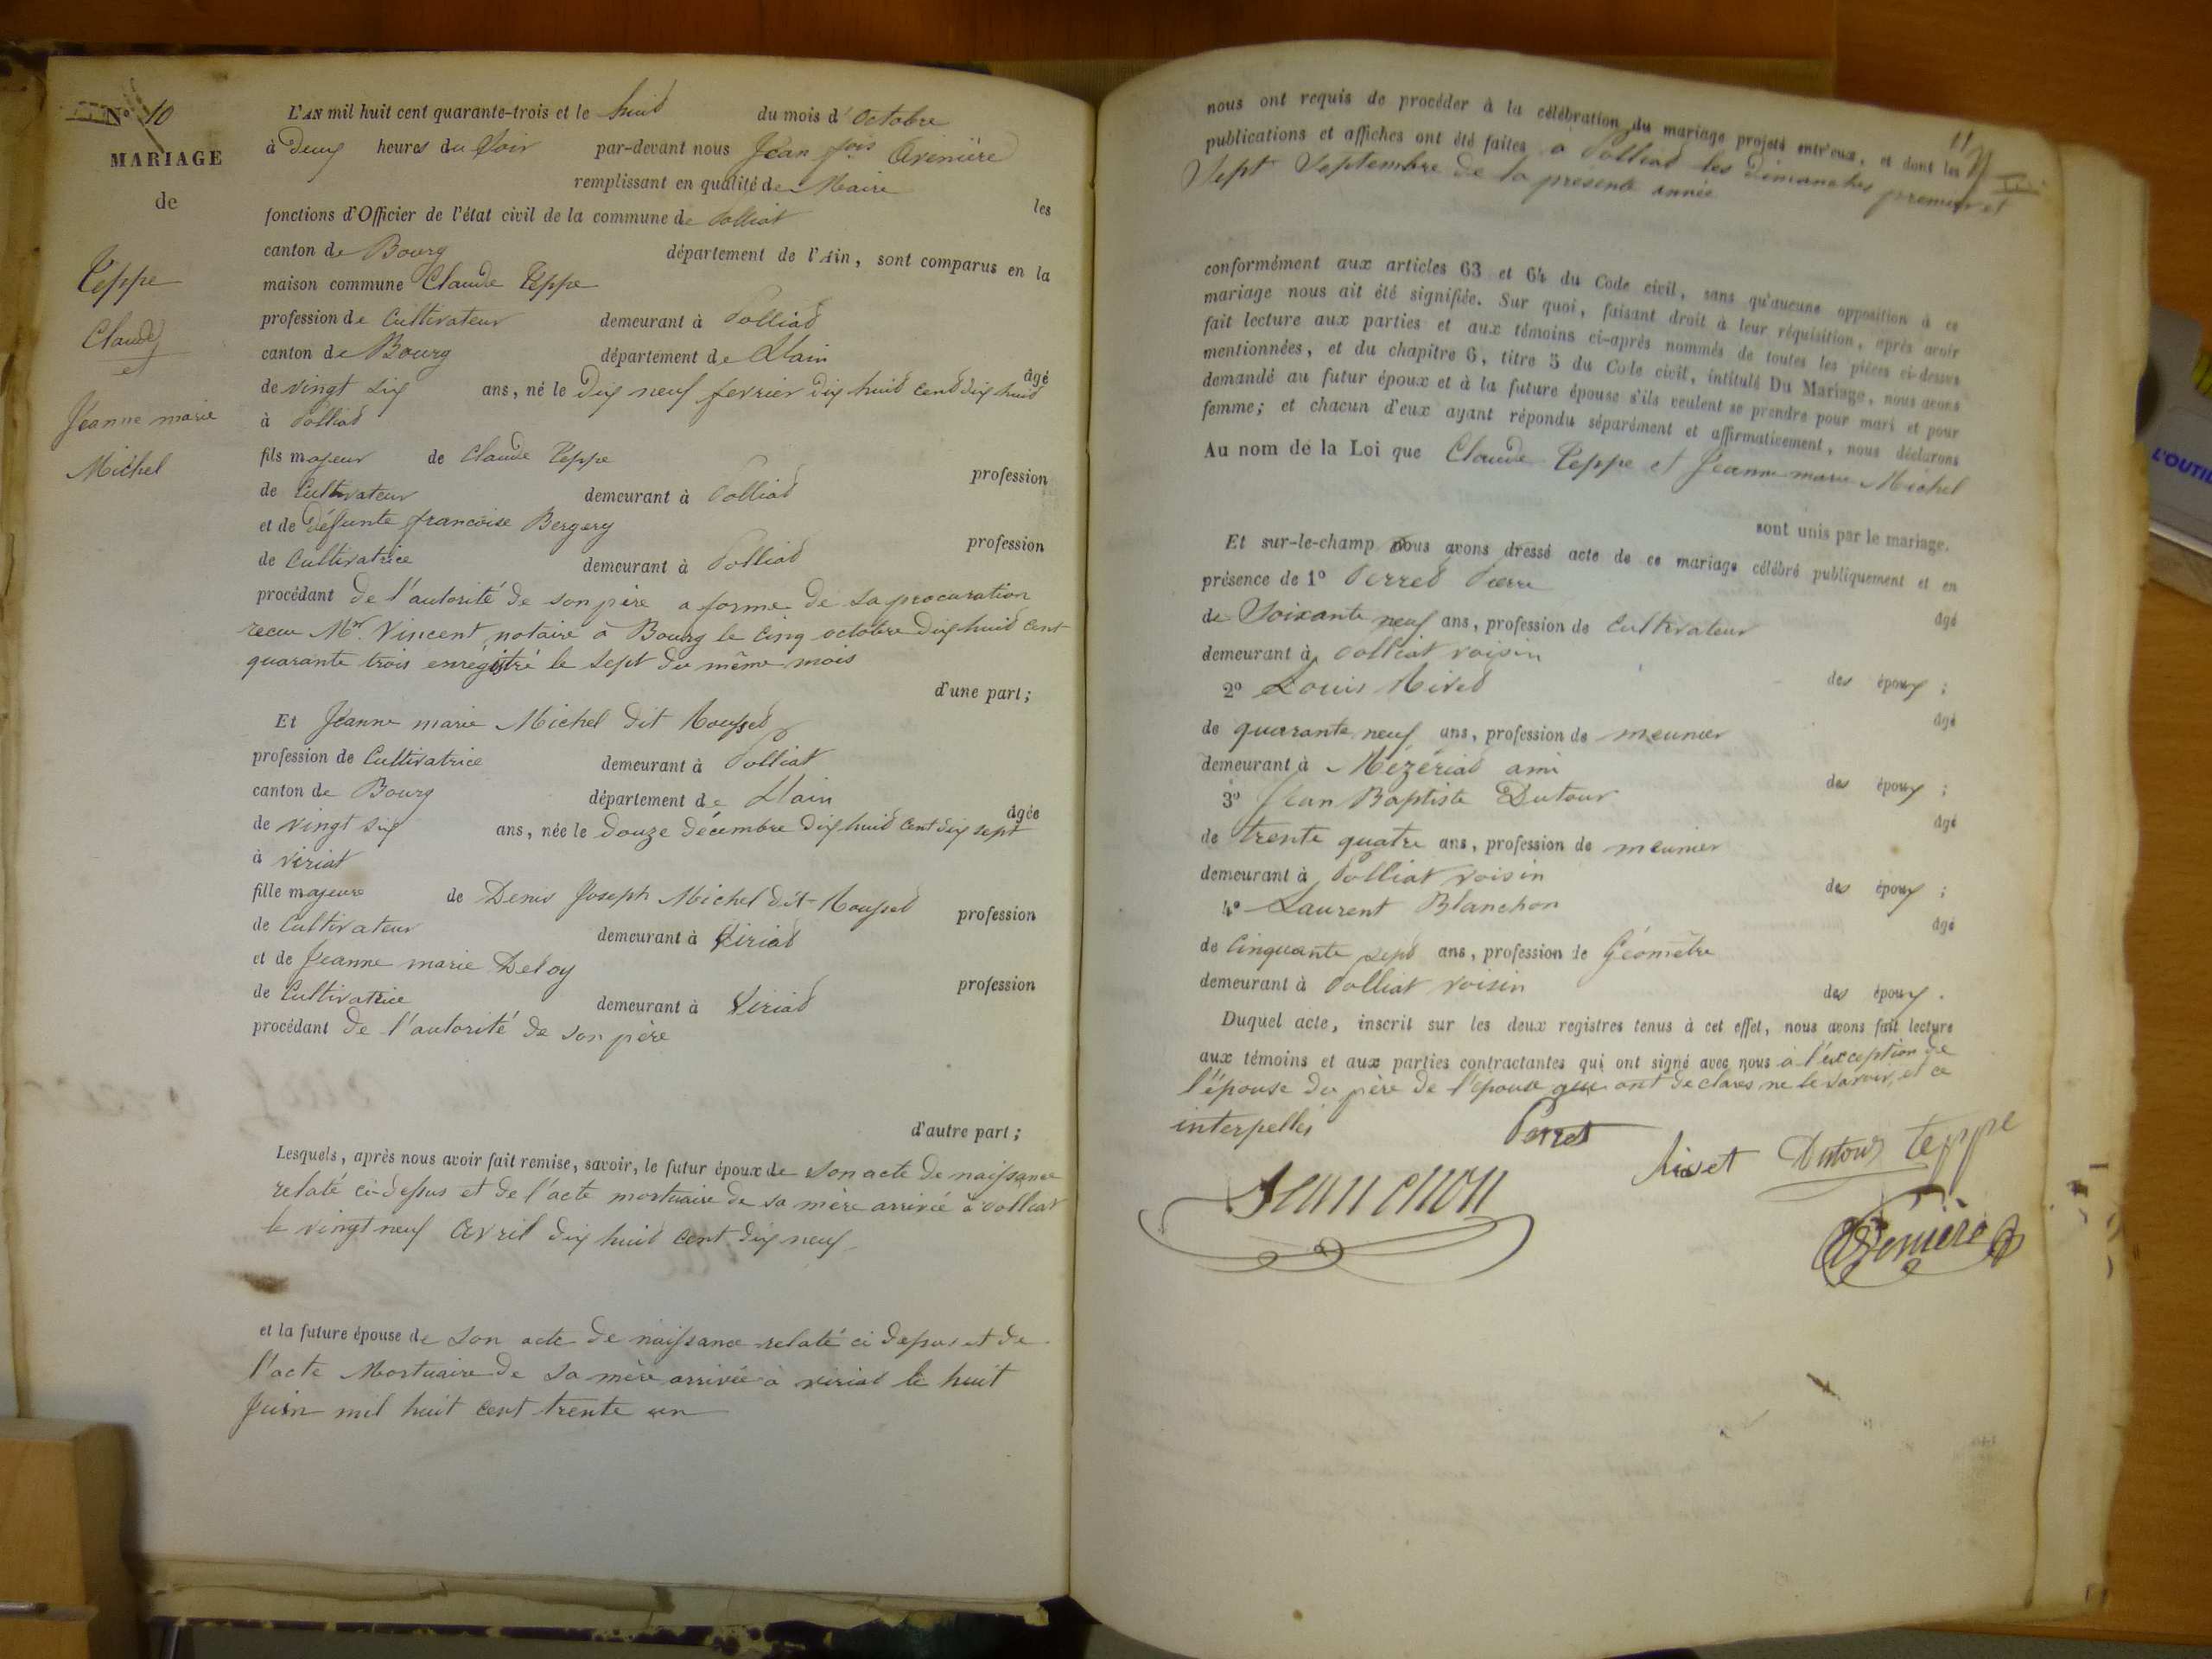 N° 10
MARIAGE
de
Teppe
Claude
et
Jeanne marie
Michel
L'AN mil huit cent quarante-trois et le huit du mois d'Octobre
à Deux heures du Soir par-devant nous Jean fois Avenière
remplissant en qualité de Maire les
fonctions d'Officier de l'état civil de la commune de Polliat
canton de Bourg département de l'Ain, sont comparus en la
maison commune Claude Teppe
profession de Cultivateur demeurant à Polliat
canton de Bourg département de Llain âgé
de vingt six ans, né le Dix neuf fevrier Dix huit cent dix huit
à Polliat
fils majeur de Claude Teppe profession
de Cultivateur demeurant à Polliat
et de Défunte francoise Bergery profession
de Cultivatrice demeurant à Polliat
procédant de l'autorité de son père a forme de sa procuration
recue Mr. Vincent notaire à Bourg le Cinq octobre Dix huit Cent
quarante trois enrégistré le sept du même mois
d'une part;
Et Jeanne marie Michel dit
profession de Cultivatrice demeurant à Polliat
canton de Bourg département de Llain âgée
de vingt six ans, née le Douze Décembre Dix huit Cent dix sept
à viriat
fille majeure de Denis Joseph Michel dit profession
de Cultivateur demeurant à Viriat
et de Jeanne marie Deloy profession
de Cultivatrice demeurant à Viriat
procédant de l'autorité de son père
d'autre part;
Lesquels, après nous avoir fait remise, savoir, le futur époux de son acte de naissance
relaté ci-dessus et de l'acte mortuaire de sa mère arrivée à Polliat
le vingt neuf Avril Dix huit Cent Dix neuf
et la future épouse de son acte de naissance relaté ci dessus et de
l'acte Mortuaire de sa mère arrivée à viriat le huit
Juin mil huit cent trente un
11
nous ont requis de procéder à la célébration du mariage projeté entr'eux, et dont les
publications et affiches ont été faites à Polliat les Dimanches premier et
Sept Septembre de la présente année
conformément aux articles 63 et 64 du Code civil, sans qu'aucune opposition à ce
mariage nous ait été signifiée. Sur quoi, faisant droit à leur réquisition, après avoir
fait lecture aux parties et aux témoins ci-après nommés de toutes les pièces ci-dessus
mentionnées, et du chapitre 6, titre 5 du Code civil, intitulé Du Mariage, nous avons
demandé au futur époux et à la future épouse s'ils veulent se prendre pour mari et pour
femme; et chacun d'eux ayant répondu séparément et affirmativement, nous déclarons
Au nom de la Loi que Claude Teppe et Jeanne marie Michel
sont unis par le mariage.
Et sur-le-champ nous avons dressé acte de ce mariage célébré publiquement et en
présence de 1° Perret Pierre
de Soixante neuf ans, profession de Cultivateur âgé
demeurant à Polliat voisin
2° Louis Rivet des époux;
de quarante neuf ans, profession de meunier âgé
demeurant à Mézériat ami
3° Jean Baptiste Dutour des époux;
de trente quatre ans, profession de meunier âgé
demeurant à Polliat voisin
4° Laurent Blanchon des époux;
de Cinquante sept ans, profession de Géomètre âgé
demeurant à Polliat voisin
des époux.
Duquel acte, inscrit sur les deux registres tenus à cet effet, nous avons fait lecture
aux témoins et aux parties contractantes qui ont signé avec nous à l'exception de
l'épouse du père de l'épouse qui ont declarés ne le savoir, et ce
interpellés
Perret
Rivet Dutour teppe
Avenière
L'OUTIL